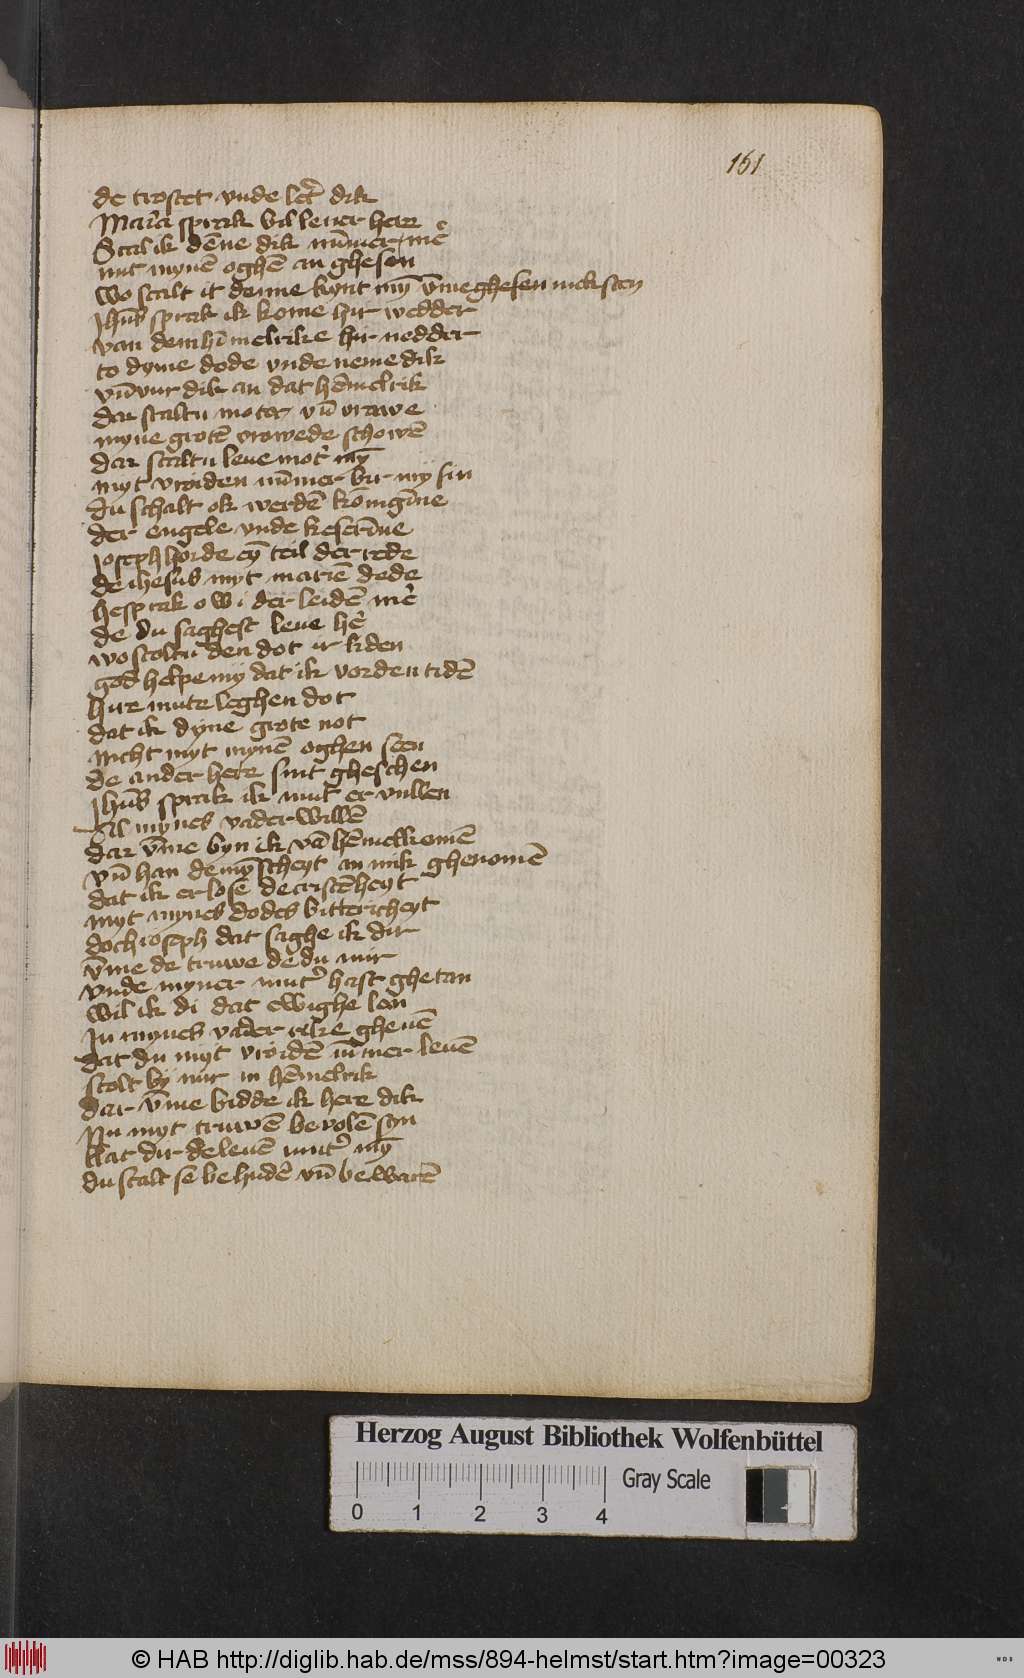 161
de trostet vnde let̉ dik
Maria sprak vil leuer here
Scal ik dēne dik nūmer mē
mit mynē oghē an ghesen
wo scalt it denne kynt my vme ghesen
Jhūs sprak ik kome hir wedder
van dem hīmelrike hir nedder
to dyme dode vnde neme dik
vn̄ vur dik an dat hēmelrik
dar scaltu moter vn̄ vrawe
myne grotē vrowede schowē
dar scaltu leue mot̉ my
myt vroiden nūmer bir my sin
du schalt ok werdē konīgīne
der engele vnde keserīne
Joseph horde ey teil der rede
de ihesus myt mariē dede
he sprak o wi der leidē mē
de du saghest leue hē
wo scoltu den dot ir liden
god helpe my dat ik vor den tidē
hire mute leghen dot
dat ik dyne grote not
Nicht myt mynē oghen seen
de ander here sint gheschen
Jhūs sprak ik mut er vullen
Al mynes vader willē
dar v̄me byn ik vā hēmel komē
vn̄ han de mȳscheyt an mik ghenomē
dat ik erlose de cristēheyt
myt mynes dodes bittericheyt
doch ioseph dat saghe ik dir
v̄me de truwe de du mir
vnde myner mut̉ hast ghetan
wil ik di dat ewighe lon
In mynes vader rike gheuē
dat du myt vroidē īmer leuē
scolt by mir in hēmelrik
dar v̄me bidde ik here dik
Nu myt truwē beuolē son
lat dir de leuē mut̉ my
du scalt se behudē vn̄ bewarē
Herzog August Bibliothek Wolfenbüttel
0 1 2 3 4
Gray Scale
© HAB http://diglib.hab.de/mss/894-helmst/start.htm?image=00323